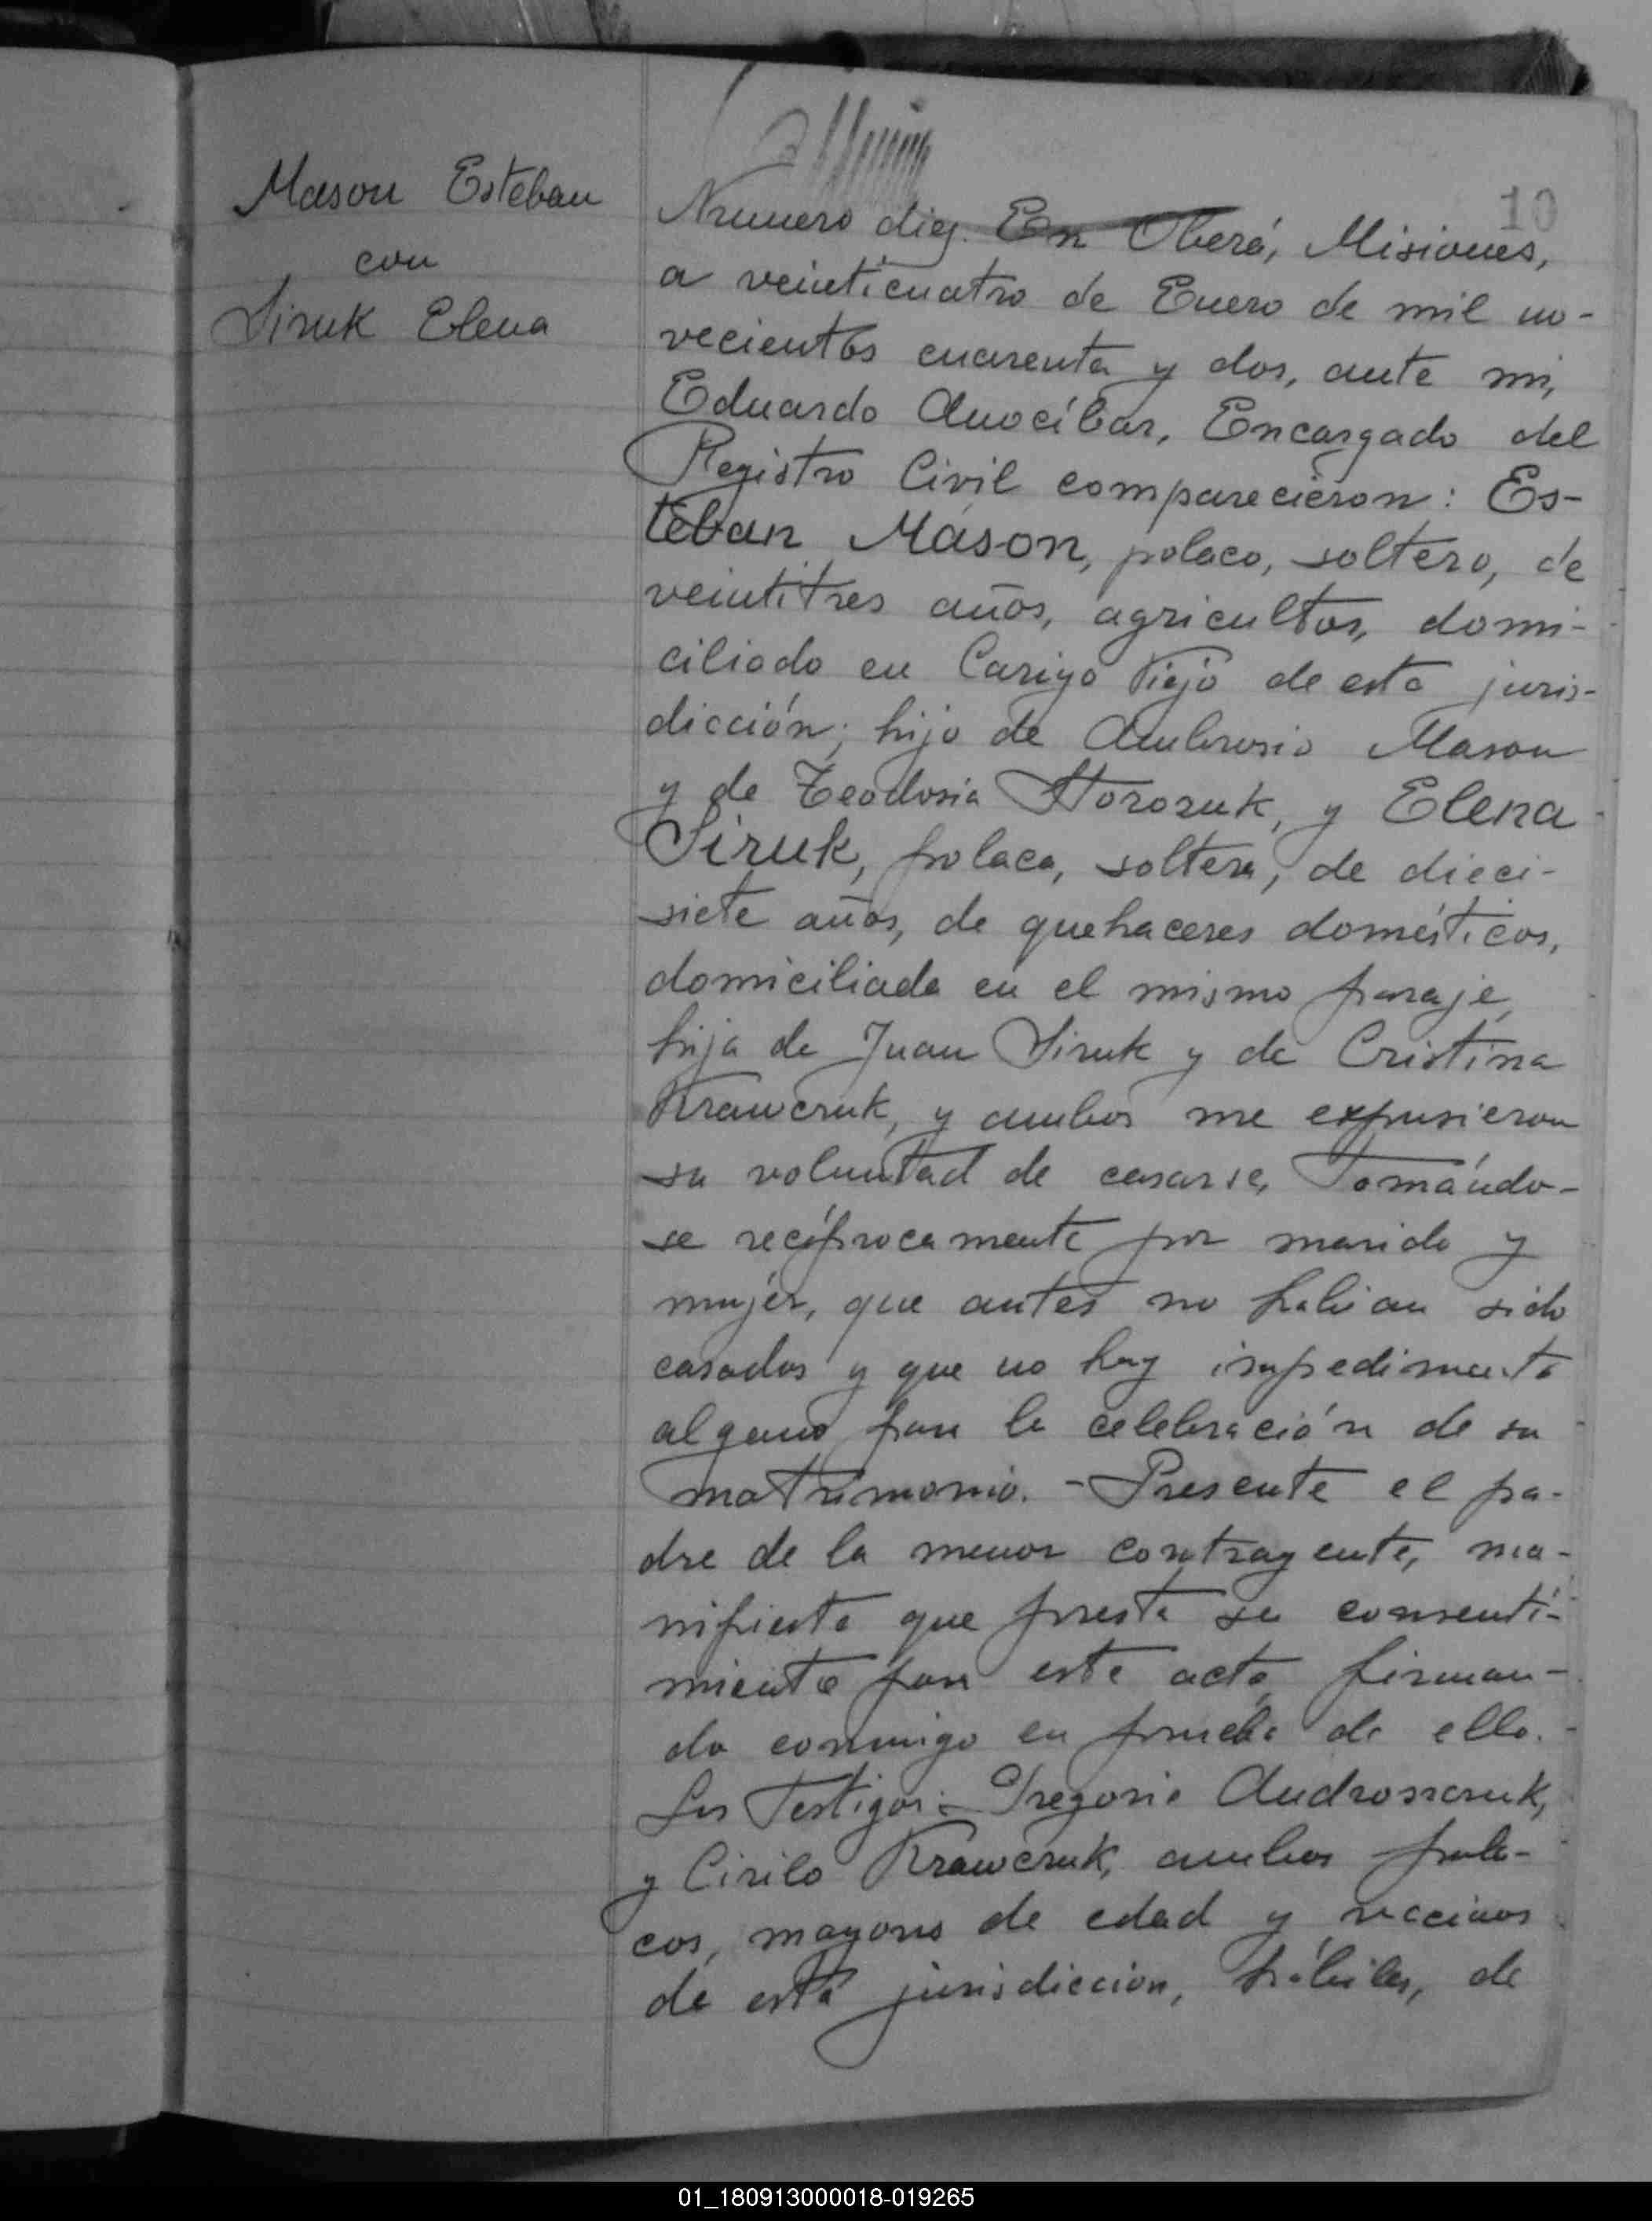 Mason Esteban
con
Siruk Elena
10
Numero diez. En Oberá, Misiones,
a veinticuatro de Enero de mil no-
vecientos cuarenta y dos, ante mi,
Eduardo Anocíbar, Encargado del
Registro Civil comparecieron: Es-
teban Mason, polaco, soltero, de
veintitres años, agricultor, domi-
ciliado en Viejo de esta juris-
dicción; hijo de Ambrosio Mason
y de Teodosia y Elena
Siruk, polaca, soltera, de dieci-
siete años, de quehaceres domésticos,
domiciliada en el mismo paraje,
hija de Juan Siruk y de Cristina
Krawczuk, y ambos me expusieron
su voluntad de casarse, tomándo-
se recíprocamente por marido y
mujer, que antes no habian sido
casados y que no hay impedimento
alguno para la celebración de su
matrimonio. - Presente el pa-
dre de la menor contrayente, ma-
nifiesta que presta su consenti-
miento para este acto, firman-
do conmigo en prueba de ello.
Los Testigos: Gregorio
y Cirilo Krawczuk, ambos pola-
cos, mayores de edad y vecinos
de esta jurisdiccion, hábiles, de
01_180913000018-019265